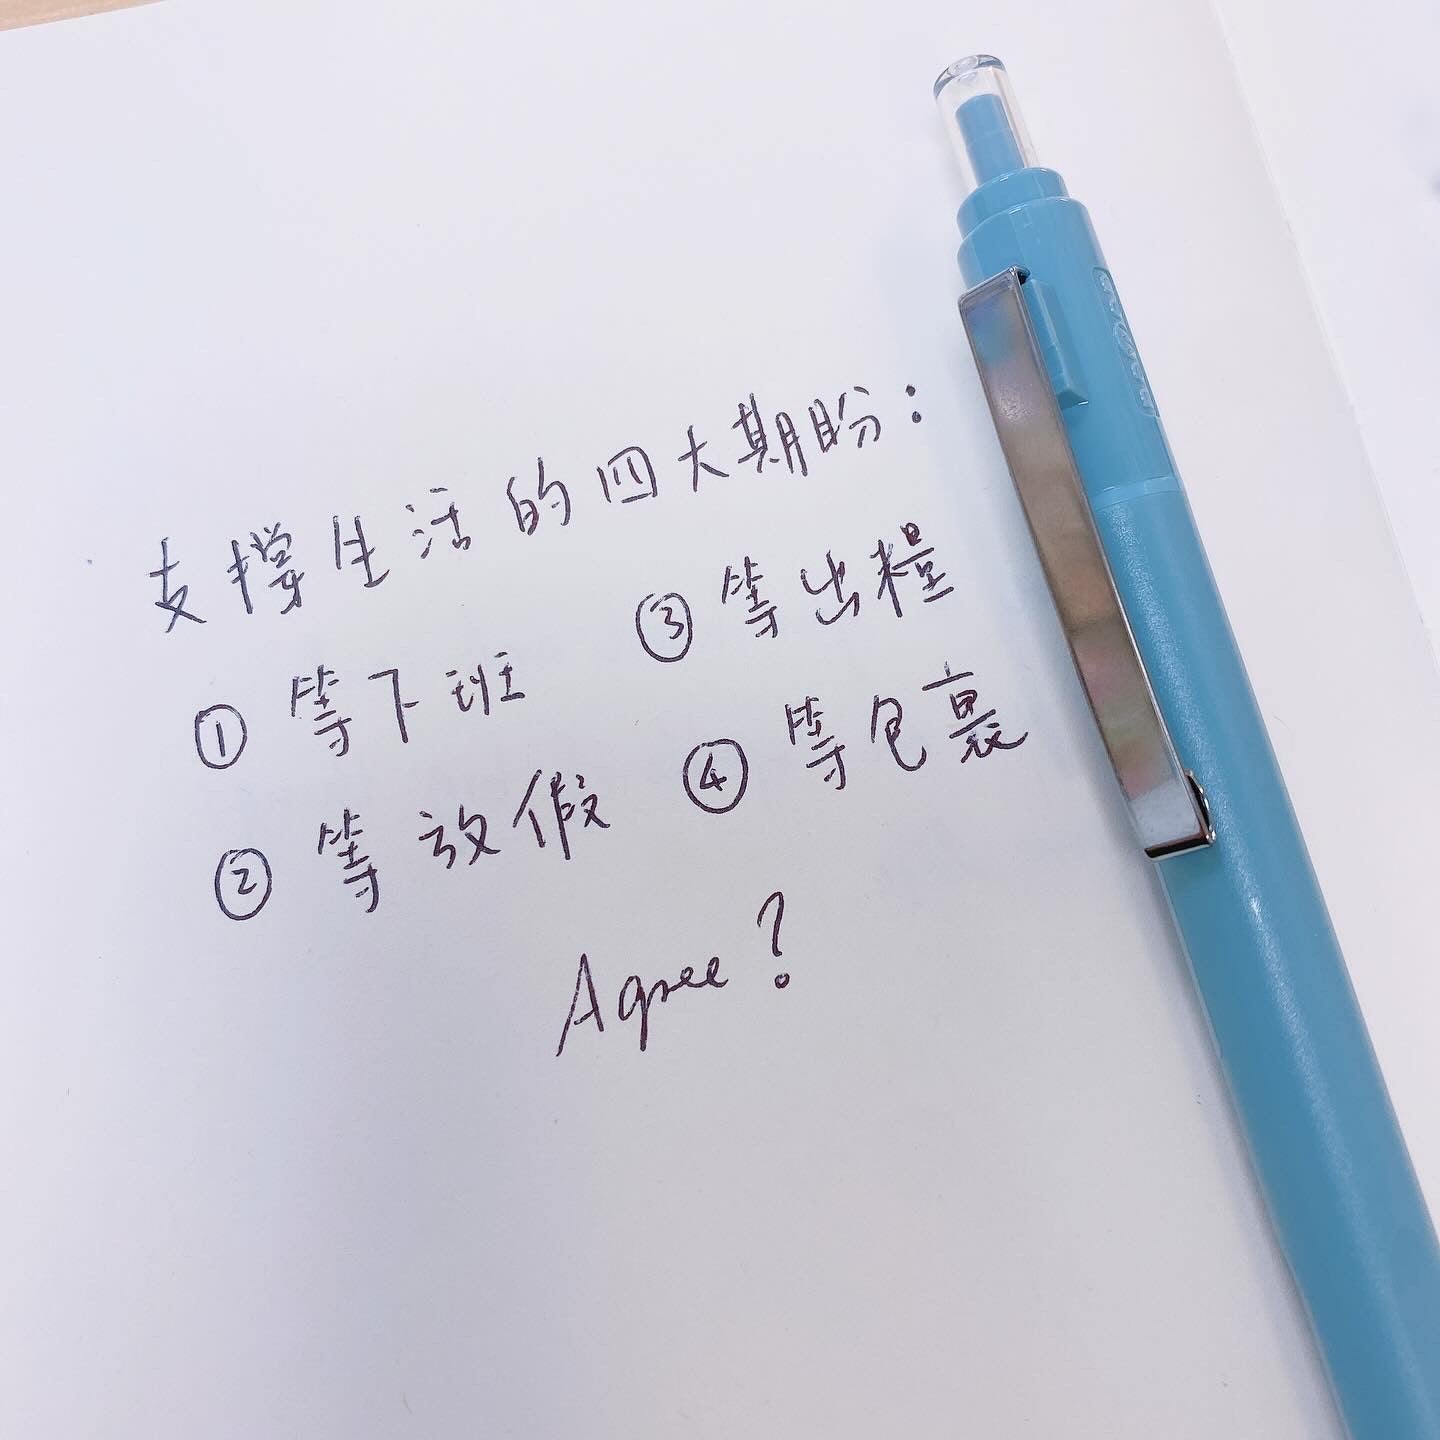 支撐生活的四大期盼：
① 等下班
② 等放假
③ 等出糧
④ 等包裹
Agree?